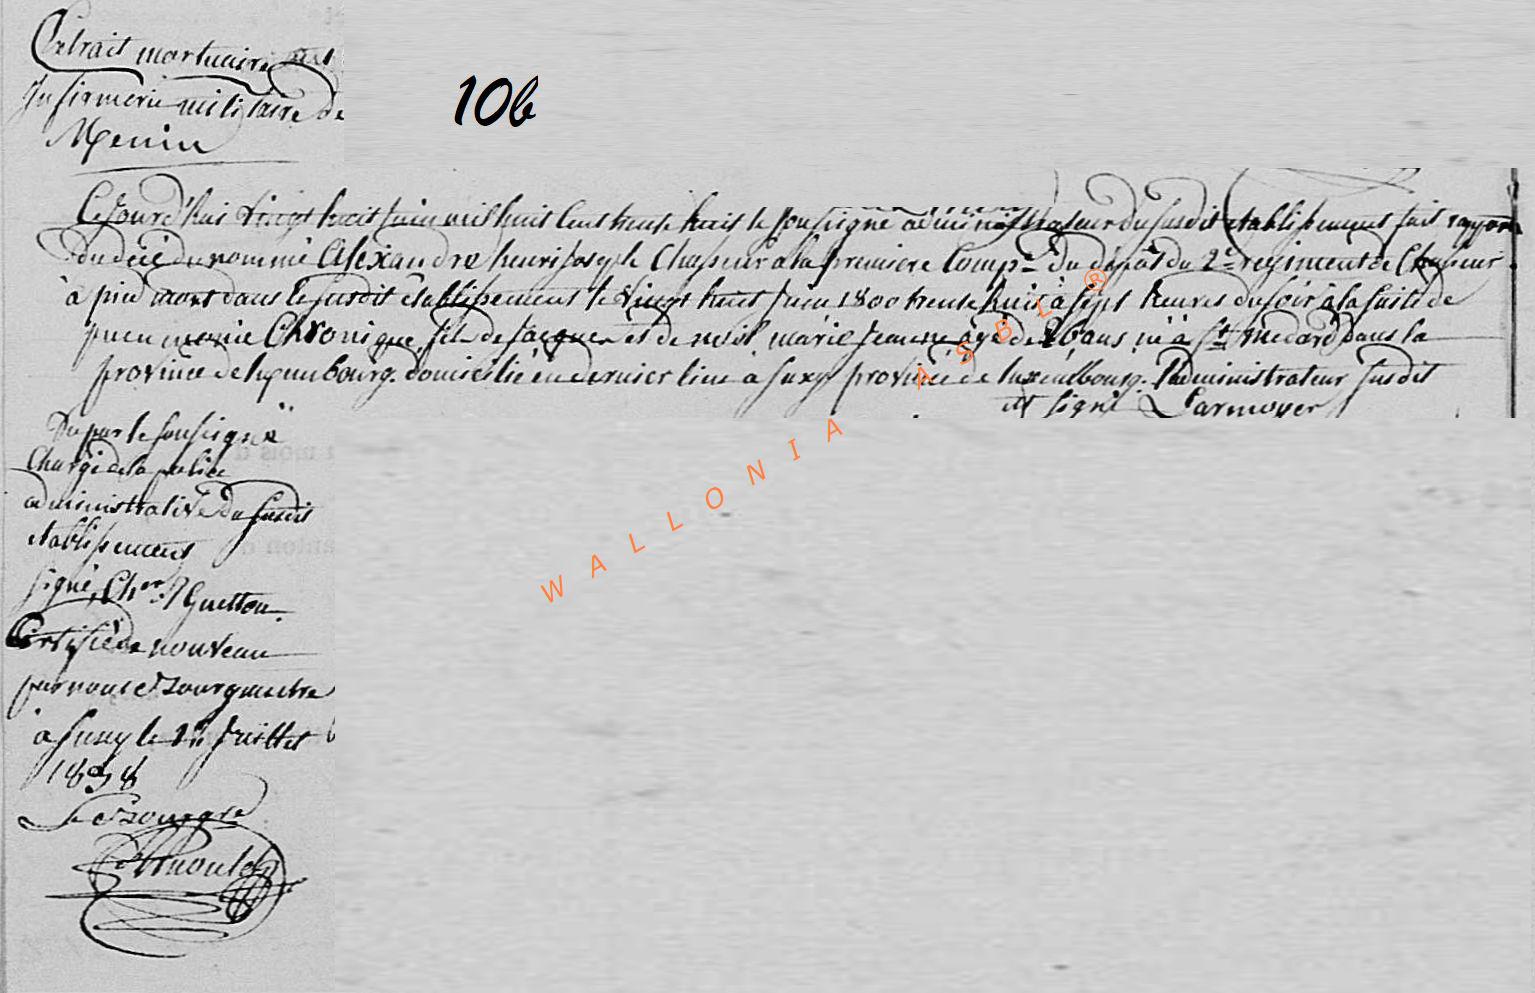 Extrait mortuaire
Infirmerie militaire de
Menin
10b
Cejourd'hui Vingt huit juin mil huit Cent trente huit le soussigné administrateur du susdit etablissement fait rapport
du décé du nommé Alexandre henri joseph Chasseur à la premiere Comp.e du dépôt du 2.e regiment de Chasseur
à pied mort dans le susdit etablissement le Vingt huit Juin 1800 trente huit à sept heures du soir à la suite de
pneumonie Chronique, fils de Jacques et de marie Jeanne agé de 26 ans né à St médard dans la
province de luxembourg. domicilié en dernier lieu à Suxy province de luxembourg. l'administrateur susdit
est signé Larmoyer
Vu par le soussigné
Chargé de la police
administrative du susdit
etablissement
signé, Ch.er
Certifié de nouveau
par nous Bourgmestre
à Suxy le Juillet
1838
Le Bourgre
Arnould
WALLONIA ASBL ®